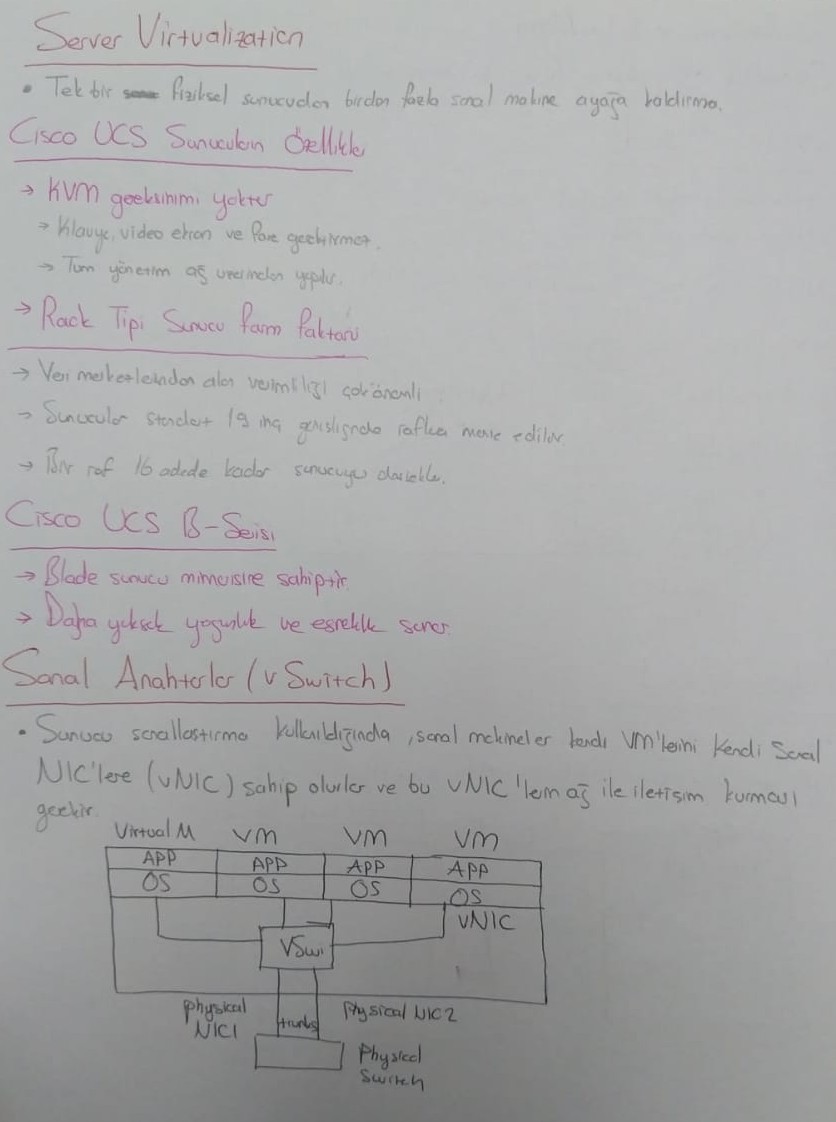 Server Virtualization
• Tek bir fiziksel sunucudan birden fazla sanal makine ayağa kaldırma.
Cisco UCS Sunucuların Özellikle
→ KVM gereksinimi yoktur
→ Klavye, video ekran ve fare gerektirmez.
→ Tüm yönetim ağ üzerinden yapılır.
→ Rack Tipi Sunucu Form Faktörü
→ Veri merkezlerinden alan verimliliği çok önemli
→ Sunucular standart 19 inç genişliğinde raflara monte edilir
→ Bir raf 16 adede kadar sunucuyu destekler.
Cisco UCS B-Serisi
→ Blade sunucu mimarisine sahiptir.
→ Daha yüksek yoğunluk ve esneklik sunar.
Sanal Anahtarlar (vSwitch)
• Sunucu sanallaştırma kullanıldığında, sanal makineler kendi VM'lerini kendi Sanal
NIC'lere (vNIC) sahip olurlar ve bu vNIC'lerin ağ ile iletişim kurması
gerekir.
Virtual M VM VM VM
APP APP APP APP
OS OS OS OS
vNIC
VSwi
Physical NIC1
trunks
Physical NIC2
Physical Switch